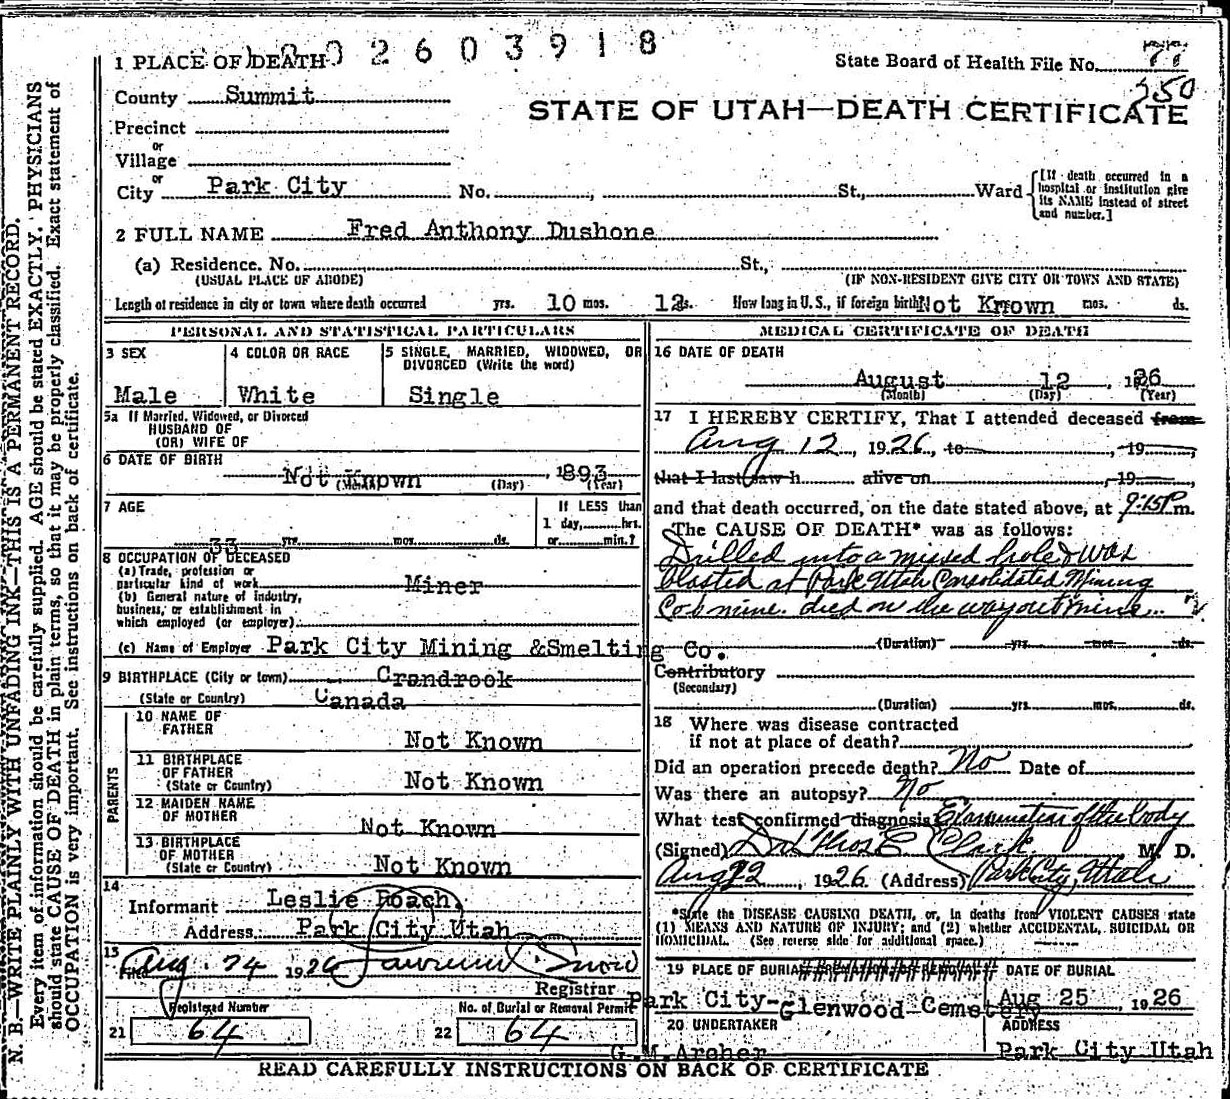 2 6 0 3 9 1 8
1 PLACE OF DEATH
State Board of Health File No. 77
350
County Summit
STATE OF UTAH—DEATH CERTIFICATE
Precinct
or
Village
or
City Park City No. St., Ward
[If death occurred in a
hospital or institution give
its NAME instead of street
and number.]
2 FULL NAME Fred Anthony Dushone
(a) Residence. No. St.,
(USUAL PLACE OF ABODE) (IF NON-RESIDENT GIVE CITY OR TOWN AND STATE)
Length of residence in city or town where death occurred yrs. 10 mos. 12 ds. How long in U.S., if foreign birth? Not Known mos. ds.
PERSONAL AND STATISTICAL PARTICULARS
3 SEX
Male
4 COLOR OR RACE
White
5 SINGLE, MARRIED, WIDOWED, OR
DIVORCED (Write the word)
Single
5a If Married, Widowed, or Divorced
HUSBAND OF
(OR) WIFE OF
6 DATE OF BIRTH
Not Known , 1893
(Month) (Day) (Year)
7 AGE
33 yrs. mos. ds.
If LESS than
1 day, hrs.
or min.?
8 OCCUPATION OF DECEASED
(a) Trade, profession or
particular kind of work Miner
(b) General nature of industry,
business, or establishment in
which employed (or employer)
(c) Name of Employer Park City Mining &Smelting Co.
9 BIRTHPLACE (City or town) Crandrook
(State or Country) Canada
PARENTS
10 NAME OF
FATHER
Not Known
11 BIRTHPLACE
OF FATHER
(State or Country) Not Known
12 MAIDEN NAME
OF MOTHER
Not Known
13 BIRTHPLACE
OF MOTHER
(State or Country) Not Known
14
Informant Leslie Roach.
Address Park City Utah
15
Filed Aug. 24 1926 Lawrence Snow
Registrar
Registered Number
21 64
No. of Burial or Removal Permit
22 64
MEDICAL CERTIFICATE OF DEATH
16 DATE OF DEATH
August 12 , 1926
(Month) (Day) (Year)
17 I HEREBY CERTIFY, That I attended deceased from
Aug 12, 1926, to , 19
that I last saw h alive on , 19
and that death occurred, on the date stated above, at 9:15P m.
The CAUSE OF DEATH* was as follows:
Drilled into a missed hole & was
blasted at Park Utah Consolidated Mining
Co's mine. died on the way out mine.
(Duration) yrs. mos. ds.
Contributory
(Secondary)
(Duration) yrs. mos. ds.
18 Where was disease contracted
if not at place of death?
Did an operation precede death? No Date of
Was there an autopsy? No
What test confirmed diagnosis? Examination of the body
(Signed) Dr. Thos E Clark M. D.
Aug 22, 1926 (Address) Park City, Utah
*State the DISEASE CAUSING DEATH, or, in deaths from VIOLENT CAUSES state
(1) MEANS AND NATURE OF INJURY; and (2) whether ACCIDENTAL, SUICIDAL OR
HOMICIDAL. (See reverse side for additional space.)
19 PLACE OF BURIAL
Park City-Glenwood Cemetery
DATE OF BURIAL
Aug 25 1926
20 UNDERTAKER
G.M.Archer
ADDRESS
Park City Utah
READ CAREFULLY INSTRUCTIONS ON BACK OF CERTIFICATE
N. B.—WRITE PLAINLY WITH UNFADING INK—THIS IS A PERMANENT RECORD.
Every item of information should be carefully supplied. AGE should be stated EXACTLY. PHYSICIANS
should state CAUSE OF DEATH in plain terms, so that it may be properly classified. Exact statement of
OCCUPATION is very important. See instructions on back of certificate.